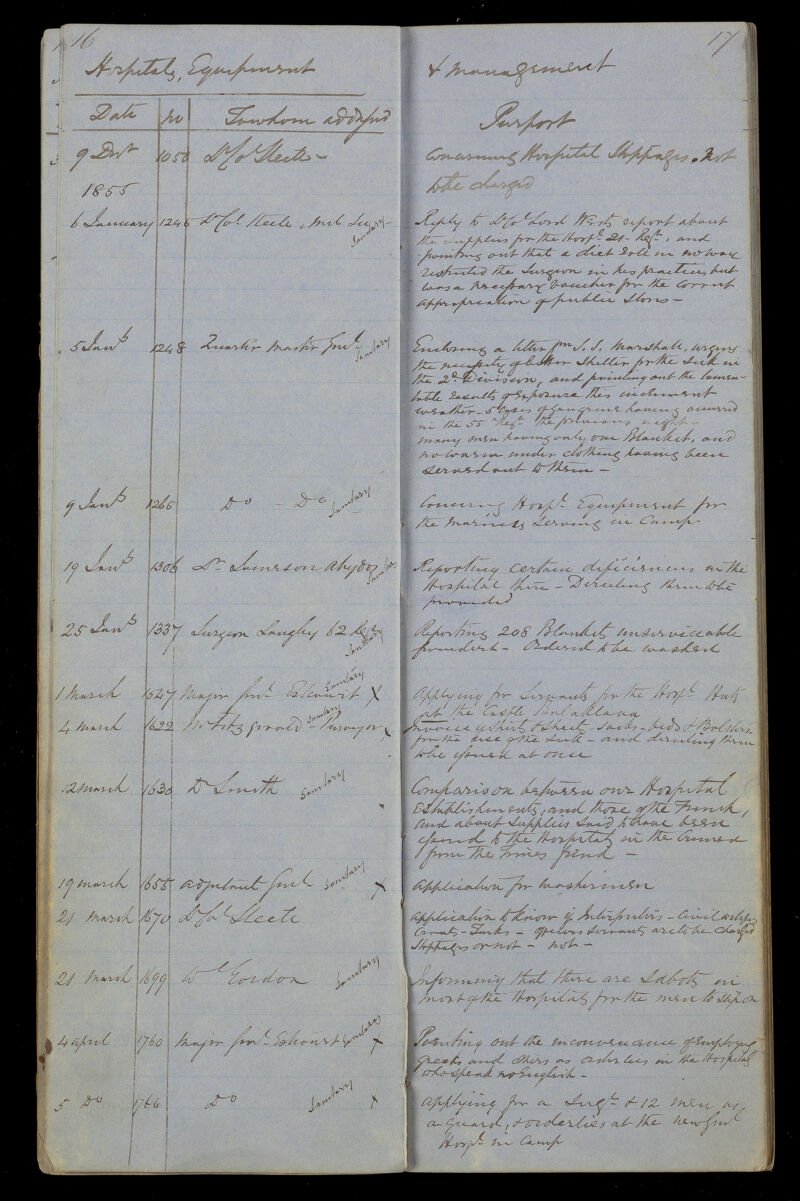 16
Hospitals, Equipment
Date no To whom addressed
9 1050 Lt Col Steele -
1855
6 January 1246 Lt Col Steele, Mil Sec - Sanitary
5 Jany 1248 Quarter Master Genl Sanitary
9 Jany 1265 Do - Do Sanitary
19 Jany 1306 Dr Jameson Abydos Sanitary
25 Jany 1337 Surgeon Langley 62 Regt Sanitary
1 March 1527 Major Genl Estcourt X Sanitary
4 March 1622 Mr Fitzgerald - Purveyor X Sanitary
12 March 1630 Dr Smith Sanitary
19 March 1655 Adjutant Genl Sanitary X
21 March 1670 Lt Col Steele
21 March 1699 Gordon Sanitary
4 April 1760 Major Genl Estcourt Sanitary X
5 Do 1766 Do Sanitary X
17
& Management
Purport
Concerning Hospital Stoppages. Not
to be charged
Reply to Lt Col Lord West's report about
the supplies for the Hospl 21st Regt, and
pointing out that a diet roll in no way
restricted the Surgeon in his practice, but
was a necessary voucher for the correct
appropriation of public Stores -
Enclosing a letter fm S. S. Marshall, urging
the necessity of better Shelter for the Sick in
the 2d Division, and pointing out the lamen-
table results of exposure this inclement
weather - 5 cases of Gangrene having occurred
in the 55 Regt the previous night -
many men having only one Blanket, and
no warm under clothing having been
served out to them -
Concerning Hospl Equipment for
the Marines serving in Camp -
Reporting certain deficiencies in the
Hospital there - Directing them to be
provided
Reporting 208 Blankets unserviceable
- Ordered to be washed
Applying for Servants for the Hospl Huts
at the Castle Balaklava
Invoice of Shirts & Sheets, Sacks - beds & Bolsters
for the use of the Sick - and directing them
to be issued at once
Comparison between our Hospital
Establishments, and those of the French,
and about Supplies said to have been
issued to the Hospitals in the Crimea
from the Times fund -
Application for Washermen
Application to know if Interpreters - Civil
Croats - Turks - Officers servants are to be charged
Stoppages or not - not -
Informing that there are Sabots in
most of the Hospitals for the men to slip on
Pointing out the inconvenience of employing
Greeks and others as orderlies in the Hospitals
who speak no English -
Applying for a Sergt & 12 men as
a guard, & orderlies at the new Genl
Hospl in Camp